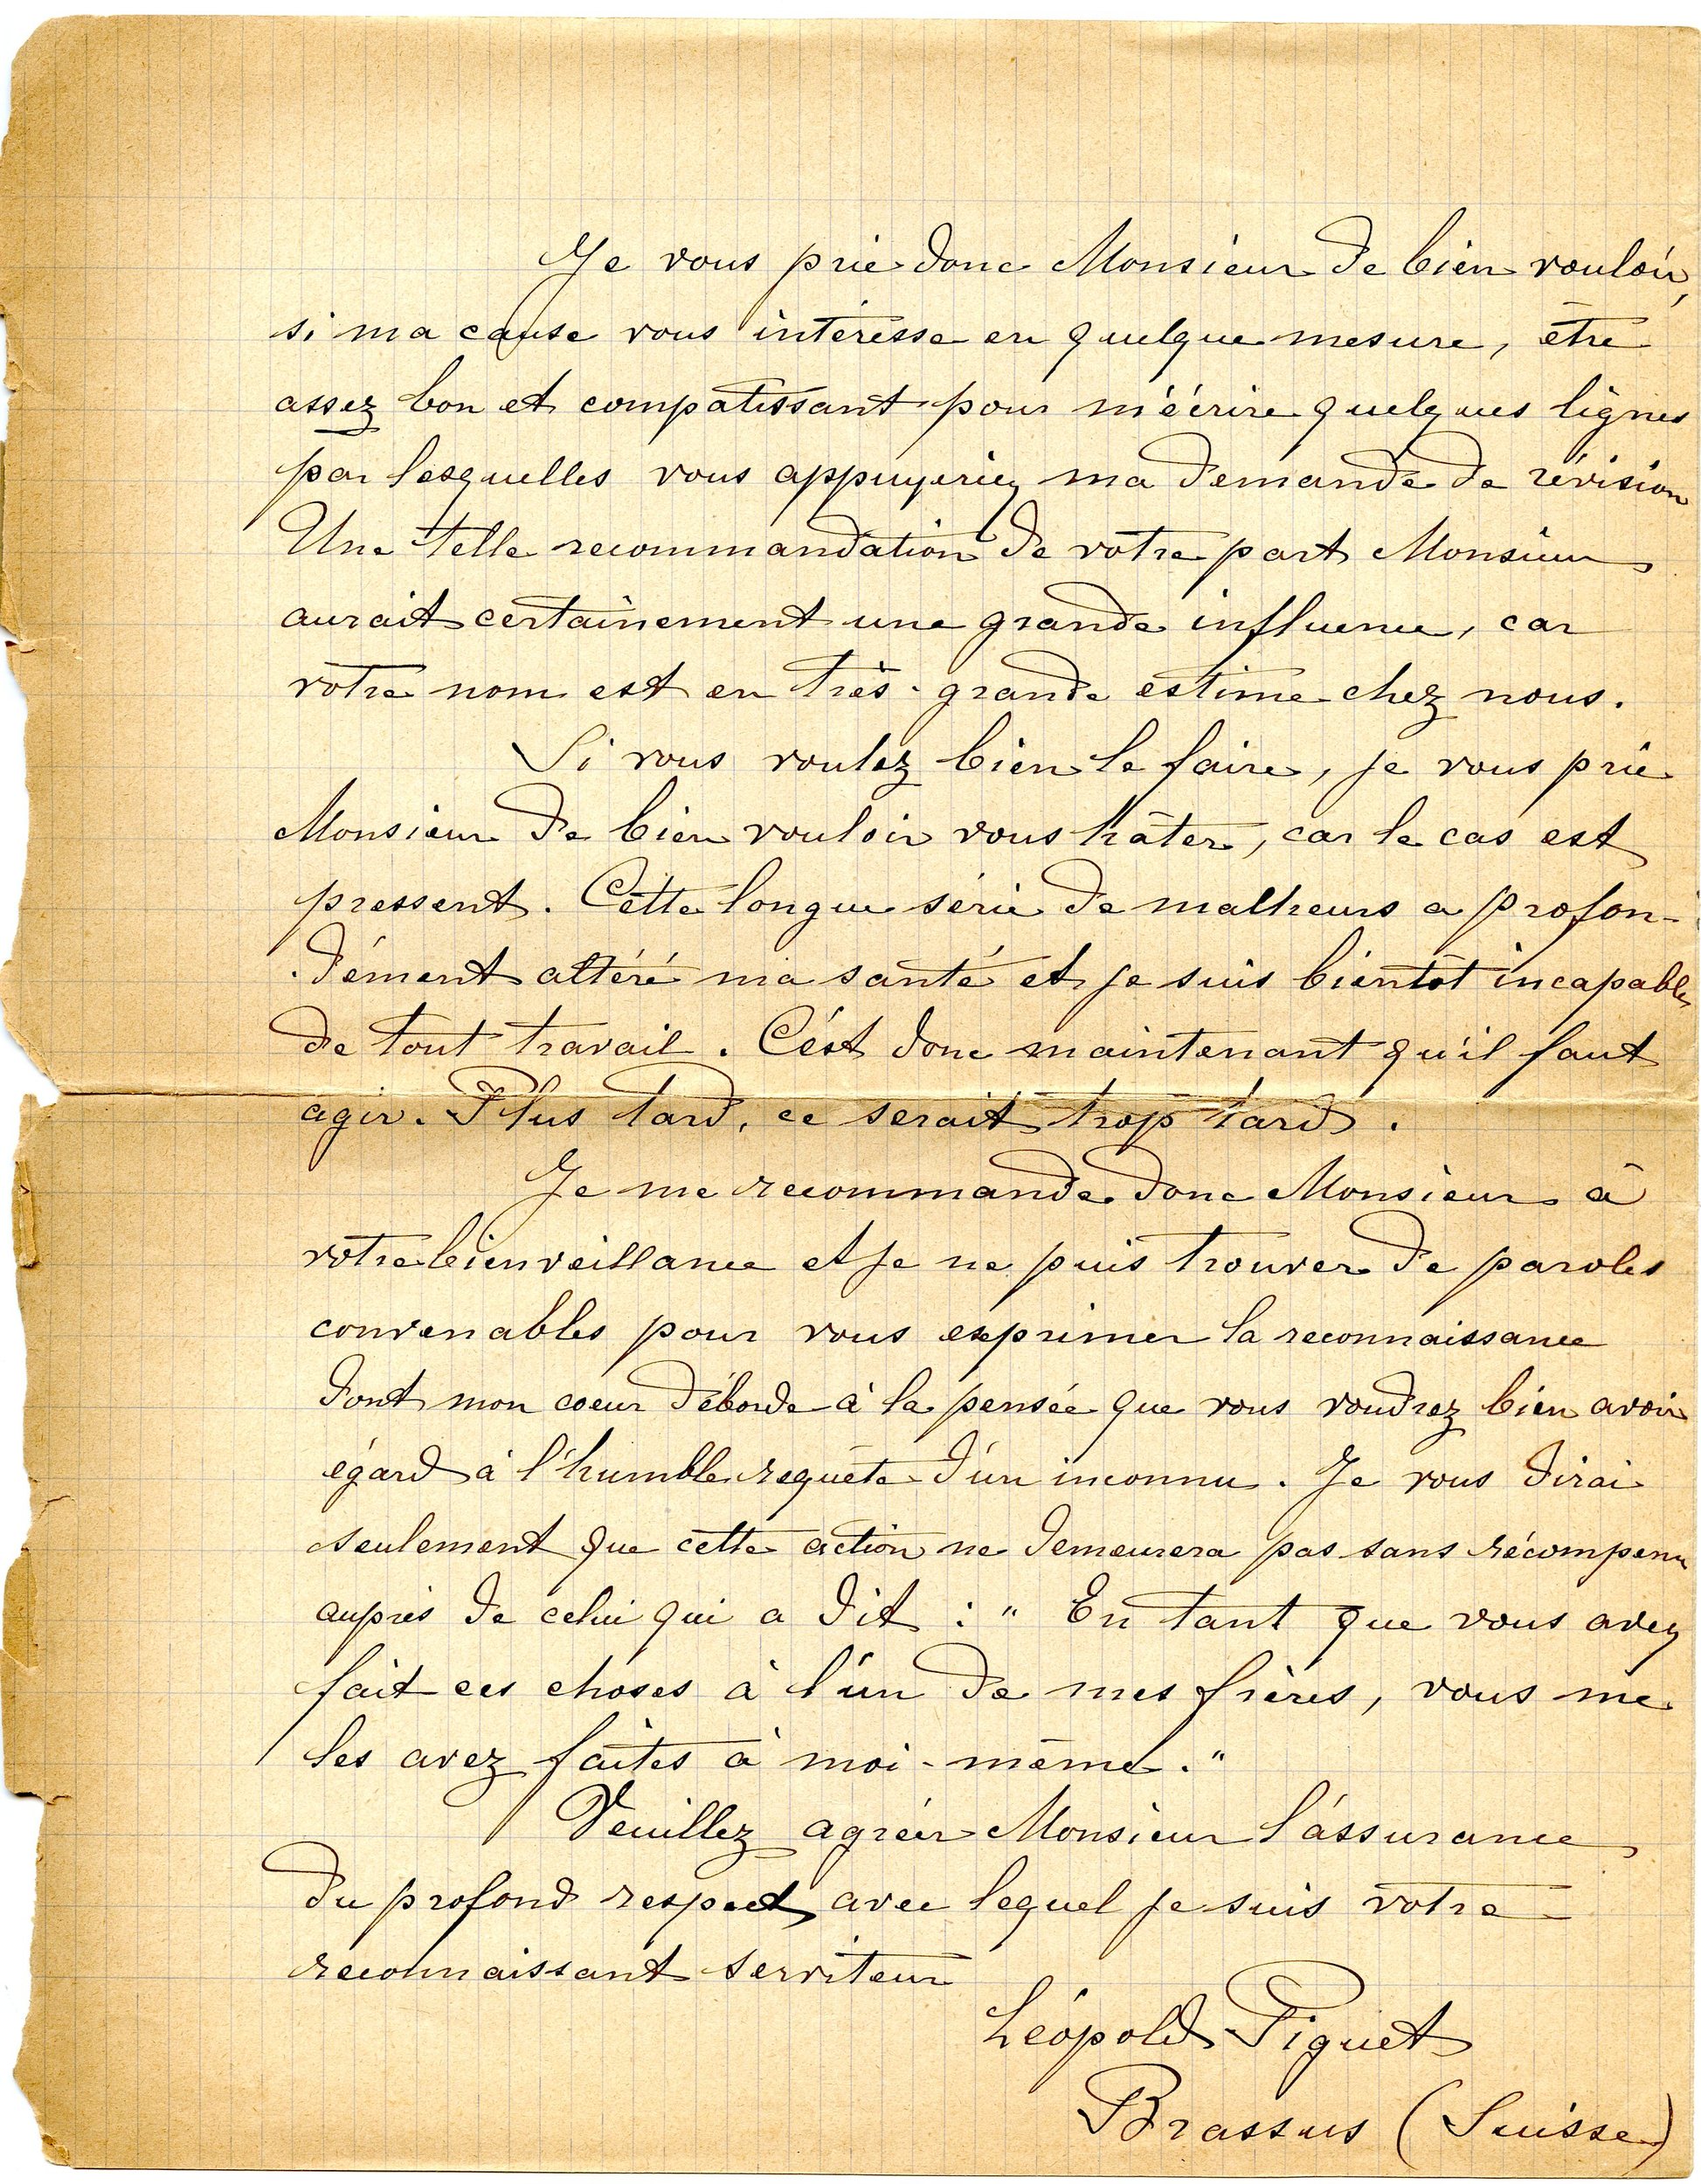 Je vous prie donc Monsieur de bien vouloir,
si ma cause vous intéresse en quelque mesure, être
assez bon et compatissant pour m'écrire quelques lignes
par lesquelles vous appuyeriez ma demande de révision
Une telle recommandation de votre part Monsieur
aurait certainement une grande influence, car
votre nom est en très-grande estime chez nous.
Si vous voulez bien le faire, je vous prie
Monsieur de bien vouloir vous hâter, car le cas est
pressent. Cette longue série de malheurs a profon-
dément altéré ma santé et je suis bientôt incapable
de tout travail. C'est donc maintenant qu'il faut
agir. Plus tard, ce serait trop tard.
Je me recommande donc Monsieur à
votre bienveillance et je ne puis trouver de paroles
convenables pour vous exprimer la reconnaissance
dont mon coeur déborde à la pensée que vous voudrez bien avoir
égard à l'humble requête d'un inconnu. Je vous dirai
seulement que cette action ne demeurera pas sans récompense
auprès de celui qui a dit : " En tant que vous avez
fait ces choses à l'un de mes frères, vous me
les avez faites à moi-même."
Veuillez agréer Monsieur l'assurance
du profond respect avec lequel je suis votre
reconnaissant serviteur
Léopold Piguet
Brassus (Suisse)